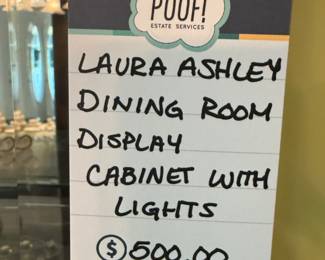 POOF!
ESTATE SERVICES
LAURA ASHLEY
DINING ROOM
DISPLAY
CABINET WITH
LIGHTS
$500.00